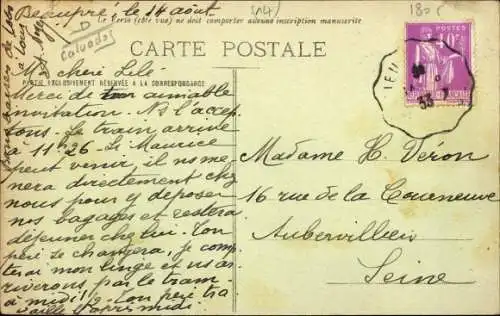 Beaupré, le 14 août
(14)
180 f
Le Verso (côté vue) ne doit comporter aucune inscription manuscrite
Calvados
CARTE POSTALE
PARTIE EXCLUSIVEMENT RÉSERVÉE A LA CORRESPONDANCE
POSTES
40c
33
Ma chère Lilé
Merci de ton aimable
invitation. Ns l'accep
tons. Le train arrive
à 11h26. Si Maurice
peut venir, il ns mè
nera directement chez
nous pour y déposer
nos bagages et restera
déjeuner chez lui. Ton
père se changera, je comp
terai mon linge et ns ar
riverons, par le tram
à midi 1/2. Ton père tra
vaille l'après midi.
Madame H. Véron
16 rue de la Courneuve
Aubervilliers
Seine